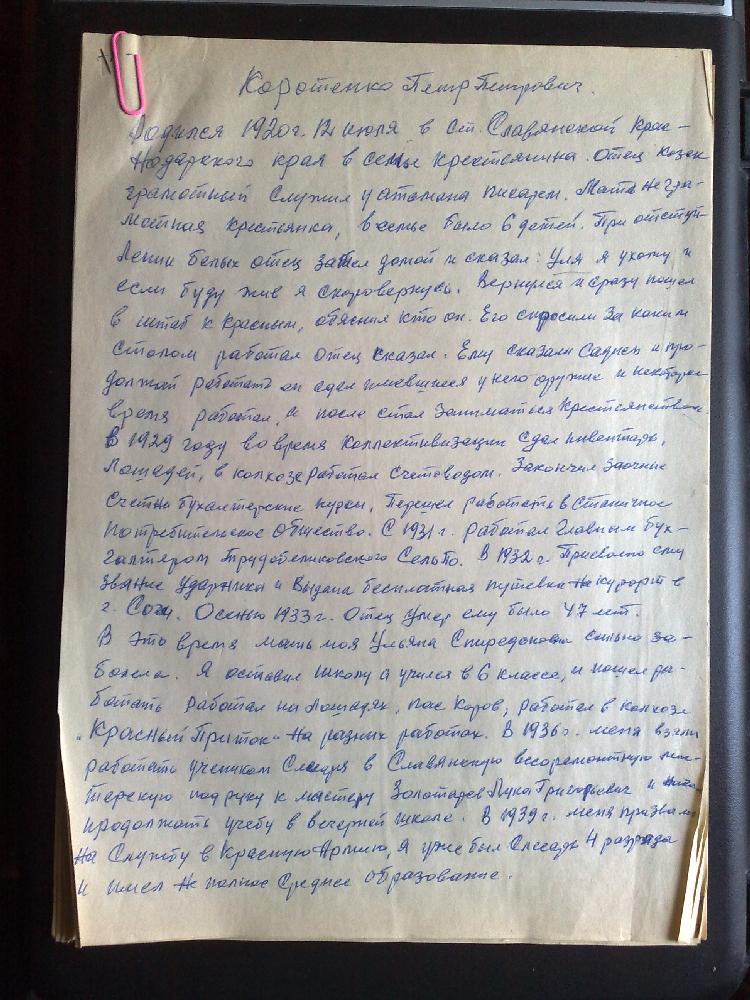 Коротенко Петр Петрович.
Родился 1920г. 12 июля в ст. Славянской Крас-
нодарского края в семье крестьянина. Отец казак
грамотный служил у атамана писарем. Мать негра-
мотная крестьянка, в семье было 6 детей. При отступ-
лении белых отец зашел домой и сказал: Уля я ухожу и
если буду жив я скоро вернусь. Вернулся и сразу пошел
в штаб к красным, обяснил кто он. Его спросили за каким
столом работал отец сказал. Ему сказали садись и про-
должай работать он сдал имевшиеся у него оружие и некоторое
время работал, а после стал заниматься крестянством.
В 1929 году во время коллективизации сдал инвентарь,
лошадей, в колхозе работал счетоводом. Закончил заочные
счетно бухгалтерские курсы, перешел работать в станичное
потребительское общество. С 1931г. работал главным бух-
галтером Трудобеликовского СельПо. В 1932г. присвоено ему
звание ударника и выдана бесплатная путевка на курорт в
г. Сочи. Осенью 1933г. отец умер ему было 47 лет.
В это время мать моя Ульяна Спиредоновна сильно за-
болела. Я оставил школу а учился в 6 классе, и пошел ра-
ботать работал на лошадях, пас коров, работал в колхозе
"Красный Приток" на разных работах. В 1936г. меня взяли
работать учеником слесаря в Славянскую весоремонтную мас-
терскую под руку к мастеру Золотарев Лука Григорьевич и
продолжать учебу в вечерней школе. В 1939г. меня призвали
на службу в Красную Армию, я уже был слесарь 4 разряда
и имел не полное среднее образование.